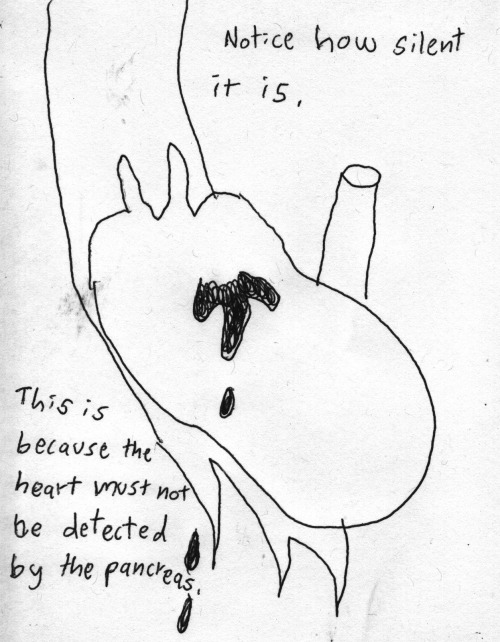 Notice how silent
it is.
This is
because the
heart must not
be detected
by the pancreas.